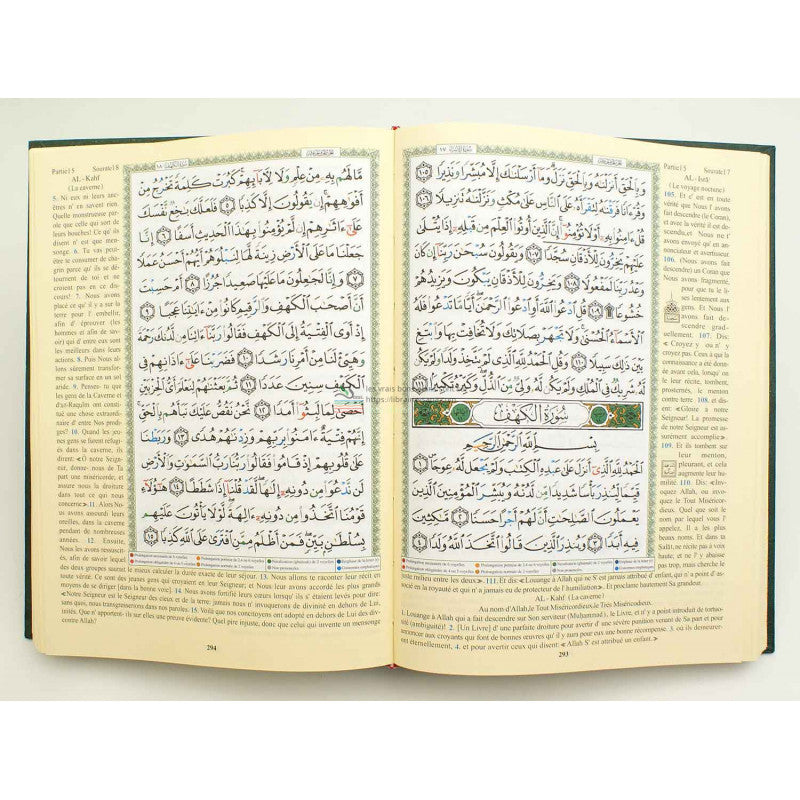 Partie15 Sourate17
AL - Isrâ'
(Le voyage nocturne)
وَبِالْحَقِّ أَنزَلْنَاهُ وَبِالْحَقِّ نَزَلَ وَمَا أَرْسَلْنَاكَ إِلَّا مُبَشِّرًا وَنَذِيرًا ١٠٥
وَقُرْءَانًا فَرَقْنَاهُ لِتَقْرَأَهُ عَلَى النَّاسِ عَلَىٰ مُكْثٍ وَنَزَّلْنَاهُ تَنزِيلًا ١٠٦
قُلْ ءَامِنُوا بِهِ أَوْ لَا تُؤْمِنُوا إِنَّ الَّذِينَ أُوتُوا الْعِلْمَ مِن قَبْلِهِ إِذَا يُتْلَىٰ
عَلَيْهِمْ يَخِرُّونَ لِلْأَذْقَانِ سُجَّدًا ١٠٧ وَيَقُولُونَ سُبْحَانَ رَبِّنَا إِن كَانَ
وَعْدُ رَبِّنَا لَمَفْعُولًا ١٠٨ وَيَخِرُّونَ لِلْأَذْقَانِ يَبْكُونَ وَيَزِيدُهُمْ
خُشُوعًا ١٠٩ قُلِ ادْعُوا اللَّهَ أَوِ ادْعُوا الرَّحْمَٰنَ أَيًّا مَّا تَدْعُوا فَلَهُ
الْأَسْمَاءُ الْحُسْنَىٰ وَلَا تَجْهَرْ بِصَلَاتِكَ وَلَا تُخَافِتْ بِهَا وَابْتَغِ
بَيْنَ ذَٰلِكَ سَبِيلًا ١١٠ وَقُلِ الْحَمْدُ لِلَّهِ الَّذِي لَمْ يَتَّخِذْ وَلَدًا وَلَمْ يَكُن
لَّهُ شَرِيكٌ فِي الْمُلْكِ وَلَمْ يَكُن لَّهُ وَلِيٌّ مِّنَ الذُّلِّ وَكَبِّرْهُ تَكْبِيرًا ١١١
سُورَةُ الْكَهْفِ
بِسْمِ اللَّهِ الرَّحْمَٰنِ الرَّحِيمِ
الْحَمْدُ لِلَّهِ الَّذِي أَنزَلَ عَلَىٰ عَبْدِهِ الْكِتَابَ وَلَمْ يَجْعَل لَّهُ عِوَجًا ١
قَيِّمًا لِّيُنذِرَ بَأْسًا شَدِيدًا مِّن لَّدُنْهُ وَيُبَشِّرَ الْمُؤْمِنِينَ الَّذِينَ
يَعْمَلُونَ الصَّالِحَاتِ أَنَّ لَهُمْ أَجْرًا حَسَنًا ٢ مَّاكِثِينَ
فِيهِ أَبَدًا ٣ وَيُنذِرَ الَّذِينَ قَالُوا اتَّخَذَ اللَّهُ وَلَدًا ٤
105. Et c'est en
toute vérité que Nous l'
avons fait descendre
(le Coran),
et avec la vérité
il est descendu. et
Nous ne t' avons
envoyé qu' en an-
nonciateur et avertisseur.
106. (Nous avons
fait descendre) un Coran que
Nous avons fragmenté,
pour que tu le li-
ses lentement aux
gens. Et Nous l'
avons fait des-
cendre grad-
uellement. 107. Dis:
« Croyez y ou n' y
croyez pas. Ceux à qui la
connaissance a été donnée
avant cela, lorsqu' on
le leur récite, tombent,
prosternés, le menton
contre terre 108. et
disent: «Gloire à notre
Seigneur! La promesse
de notre Seigneur est
assurément accomplie».
109. Et ils tombent sur
leur menton,
pleurant, et cela
augmente leur hu-
milité. 110. Dis: «Inv-
oquez Allah, ou invo-
quez le Tout Misérico-
rdieux. Quel que soit le
nom par lequel vous l'
appelez, Il a les
plus beaux noms. Et dans ta
Salât, ne récite pas à voix
haute; et ne l'y abaisse
pas trop, mais cherche le
juste milieu entre les deux ».111. Et dis: «Louange à Allah qui ne S' est jamais attribué d' enfant, qui n' a point d' associé
en la royauté et qui n' a jamais eu de protecteur de l' humiliation». Et proclame hautement Sa grandeur.
AL - Kahf (La caverne)
Au nom d'Allah,le Tout Miséricordieux,le Très Miséricordieux.
1. Louange à Allah qui a fait descendre sur Son serviteur (Muhammad), le Livre, et n' y a point introduit de tortuo-
sité (ambiguïté)! 2. [Un Livre] d' une parfaite droiture pour avertir d' une sévère punition venant de Sa part et pour
annoncer aux croyants qui font de bonnes œuvres qu' il y aura pour eux une bonne récompense. 3. où ils demeurer-
ont éternellement, 4. et pour avertir ceux qui disent: « Allah S' est attribué un enfant.»
293
Partie15 Sourate18
AL - Kahf
(La caverne)
مَّا لَهُم بِهِ مِنْ عِلْمٍ وَلَا لِآبَائِهِمْ كَبُرَتْ كَلِمَةً تَخْرُجُ مِنْ
أَفْوَاهِهِمْ إِن يَقُولُونَ إِلَّا كَذِبًا ٥ فَلَعَلَّكَ بَاخِعٌ نَّفْسَكَ
عَلَىٰ ءَاثَارِهِمْ إِن لَّمْ يُؤْمِنُوا بِهَٰذَا الْحَدِيثِ أَسَفًا ٦ إِنَّا
جَعَلْنَا مَا عَلَى الْأَرْضِ زِينَةً لَّهَا لِنَبْلُوَهُمْ أَيُّهُمْ أَحْسَنُ عَمَلًا
٧ وَإِنَّا لَجَاعِلُونَ مَا عَلَيْهَا صَعِيدًا جُرُزًا ٨ أَمْ حَسِبْتَ
أَنَّ أَصْحَابَ الْكَهْفِ وَالرَّقِيمِ كَانُوا مِنْ ءَايَاتِنَا عَجَبًا ٩
إِذْ أَوَى الْفِتْيَةُ إِلَى الْكَهْفِ فَقَالُوا رَبَّنَا ءَاتِنَا مِن لَّدُنكَ رَحْمَةً
وَهَيِّئْ لَنَا مِنْ أَمْرِنَا رَشَدًا ١٠ فَضَرَبْنَا عَلَىٰ ءَاذَانِهِمْ فِي
الْكَهْفِ سِنِينَ عَدَدًا ١١ ثُمَّ بَعَثْنَاهُمْ لِنَعْلَمَ أَيُّ الْحِزْبَيْنِ
أَحْصَىٰ لِمَا لَبِثُوا أَمَدًا ١٢ نَّحْنُ نَقُصُّ عَلَيْكَ نَبَأَهُم بِالْحَقِّ
إِنَّهُمْ فِتْيَةٌ ءَامَنُوا بِرَبِّهِمْ وَزِدْنَاهُمْ هُدًى ١٣ وَرَبَطْنَا
عَلَىٰ قُلُوبِهِمْ إِذْ قَامُوا فَقَالُوا رَبُّنَا رَبُّ السَّمَاوَاتِ وَالْأَرْضِ
لَن نَّدْعُوَ مِن دُونِهِ إِلَٰهًا لَّقَدْ قُلْنَا إِذًا شَطَطًا ١٤ هَٰؤُلَاءِ
قَوْمُنَا اتَّخَذُوا مِن دُونِهِ ءَالِهَةً لَّوْلَا يَأْتُونَ عَلَيْهِم
بِسُلْطَانٍ بَيِّنٍ فَمَنْ أَظْلَمُ مِمَّنِ افْتَرَىٰ عَلَى اللَّهِ كَذِبًا ١٥
5. Ni eux ni leurs anc-
êtres n' en savent rien.
Quelle monstrueuse pa-
role que celle qui sort de
leurs bouches! Ce qu' ils
disent n' est que men-
songe. 6. Tu vas peut-être
te consumer de cha-
grin parce qu' ils se dé-
tournent de toi et ne
croient pas en ce dis-
cours! 7. Nous avons
placé ce qu' il y a sur
la terre pour l' embellir,
afin d' éprouver (les
hommes et afin de savoir)
qui d' entre eux sont
les meilleurs dans leurs
actions. 8. Puis Nous al-
lons sûrement transfor-
mer sa surface en un sol
aride. 9. Penses- tu que
les gens de la Caverne et
d'ar-Raquîm ont con-
stitué une chose extraor-
dinaire d' entre Nos prod-
iges? 10. Quand les jeu-
nes gens se furent réfug-
iés dans la caverne, ils
dirent: «Ô notre Seign-
eur, donne- nous de Ta
part une miséricorde,
et assure nous la droiture
dans tout ce qui nous
concerne».11. Alors Nous
avons assourdi leurs
oreilles, dans la caverne
pendant de nombreuses
années. 12. Ensuite, Nous
les avons ressuscit-
és, afin de savoir lequel
des deux groupes saurait le mieux calculer la durée exacte de leur séjour. 13. Nous allons te raconter leur récit en
toute vérité. Ce sont des jeunes gens qui croyaient en leur Seigneur; et Nous leur avons accordé les plus grands
moyens de se diriger [dans la bonne voie]. 14. Nous avons fortifié leurs cœurs lorsqu' ils s' étaient levés pour dire:
«Notre Seigneur est le Seigneur des cieux et de la terre: jamais nous n' invoquerons de divinité en dehors de Lui,
sans quoi, nous transgresserions dans nos paroles. 15. Voilà que nos concitoyens ont adopté en dehors de Lui des divinités.
Que n' apportent- ils sur elles une preuve évidente? Quel pire injuste, donc que celui qui invente un mensonge
contre Allah?
294